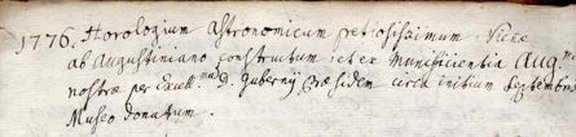 1776. Horologium Astronomicum pretiosissimum Vienæ
ab Augustiniano constructum, et ex Munificientia Aug.mæ
nostræ per Excell.mum D. Gubernij Præsidem circa initium Septembris
Museo donatum.